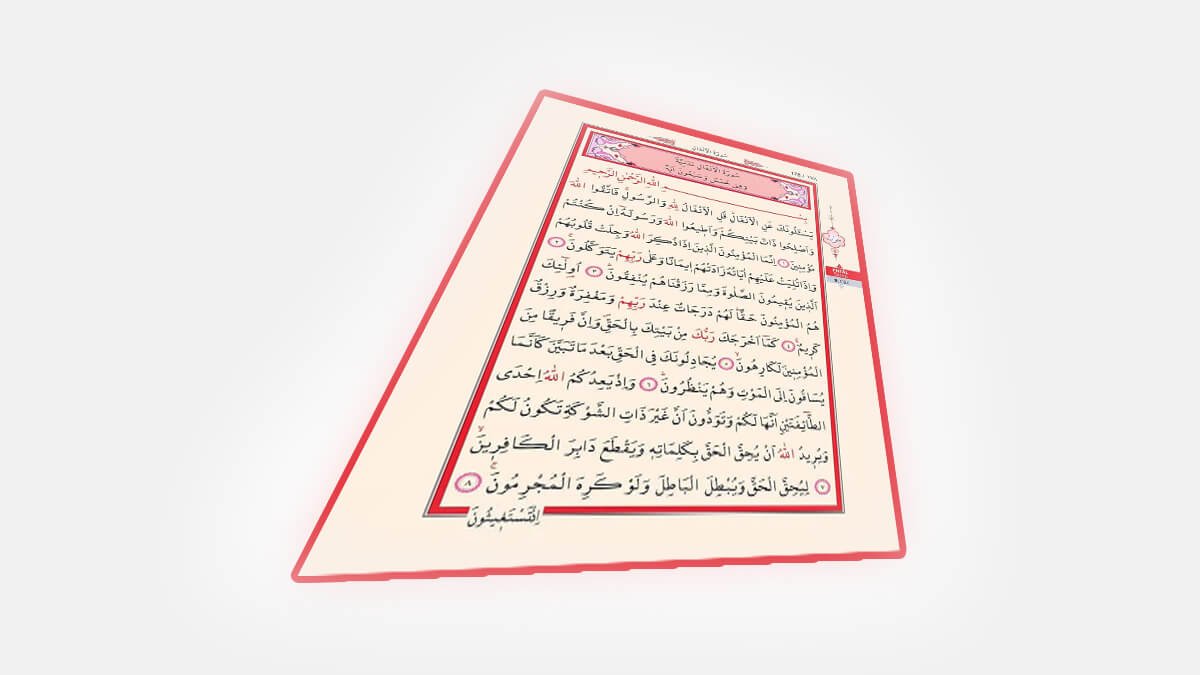 سُورَةُ الْاَنْفَالِ
١٧٨
سُورَةُ الْاَنْفَالِ مَدَنِيَّةٌ
وَهِيَ خَمْسٌ وَسَبْعُونَ اٰيَةً
بِسْــــــمِ اللّٰهِ الرَّحْمٰنِ الرَّحٖيمِ
يَسْـَٔلُونَكَ عَنِ الْاَنْفَالِؕ قُلِ الْاَنْفَالُ لِلّٰهِ وَالرَّسُولِۚ فَاتَّقُوا اللّٰهَ
وَاَصْلِحُوا ذَاتَ بَيْنِكُمْࣕ وَاَطٖيعُوا اللّٰهَ وَرَسُولَهُٓ اِنْ كُنْتُمْ
مُؤْمِنٖينَ ﴿١﴾ اِنَّمَا الْمُؤْمِنُونَ الَّذٖينَ اِذَا ذُكِرَ اللّٰهُ وَجِلَتْ قُلُوبُهُمْ
وَاِذَا تُلِيَتْ عَلَيْهِمْ اٰيَاتُهُ زَادَتْهُمْ اٖيمَانًا وَعَلٰى رَبِّهِمْ يَتَوَكَّلُونَۚ ﴿٢﴾
اَلَّذٖينَ يُقٖيمُونَ الصَّلٰوةَ وَمِمَّا رَزَقْنَاهُمْ يُنْفِقُونَؕ ﴿٣﴾ اُو۬لٰٓئِكَ
هُمُ الْمُؤْمِنُونَ حَقًّاؕ لَهُمْ دَرَجَاتٌ عِنْدَ رَبِّهِمْ وَمَغْفِرَةٌ وَرِزْقٌ
كَرٖيمٌۚ ﴿٤﴾ كَمَٓا اَخْرَجَكَ رَبُّكَ مِنْ بَيْتِكَ بِالْحَقِّࣕ وَاِنَّ فَرٖيقًا مِنَ
الْمُؤْمِنٖينَ لَكَارِهُونَۙ ﴿٥﴾ يُجَادِلُونَكَ فِي الْحَقِّ بَعْدَ مَا تَبَيَّنَ كَاَنَّمَا
يُسَاقُونَ اِلَى الْمَوْتِ وَهُمْ يَنْظُرُونَؕ ﴿٦﴾ وَاِذْ يَعِدُكُمُ اللّٰهُ اِحْدَى
الطَّٓائِفَتَيْنِ اَنَّهَا لَكُمْ وَتَوَدُّونَ اَنَّ غَيْرَ ذَاتِ الشَّوْكَةِ تَكُونُ لَكُمْ
وَيُرٖيدُ اللّٰهُ اَنْ يُحِقَّ الْحَقَّ بِكَلِمَاتِهٖ وَيَقْطَعَ دَابِرَ الْكَافِرٖينَۙ
﴿٧﴾ لِيُحِقَّ الْحَقَّ وَيُبْطِلَ الْبَاطِلَ وَلَوْ كَرِهَ الْمُجْرِمُونَۚ ﴿٨﴾
اِذْ تَسْتَغٖيثُونَ